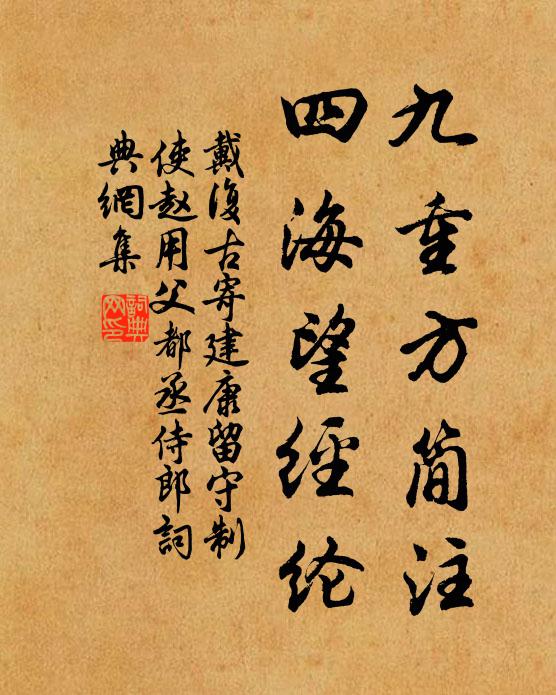 九重方简注
四海望經纶
戴復古寄建康留守制
使赵用父都丞侍郎詞
典網集
詞典網印